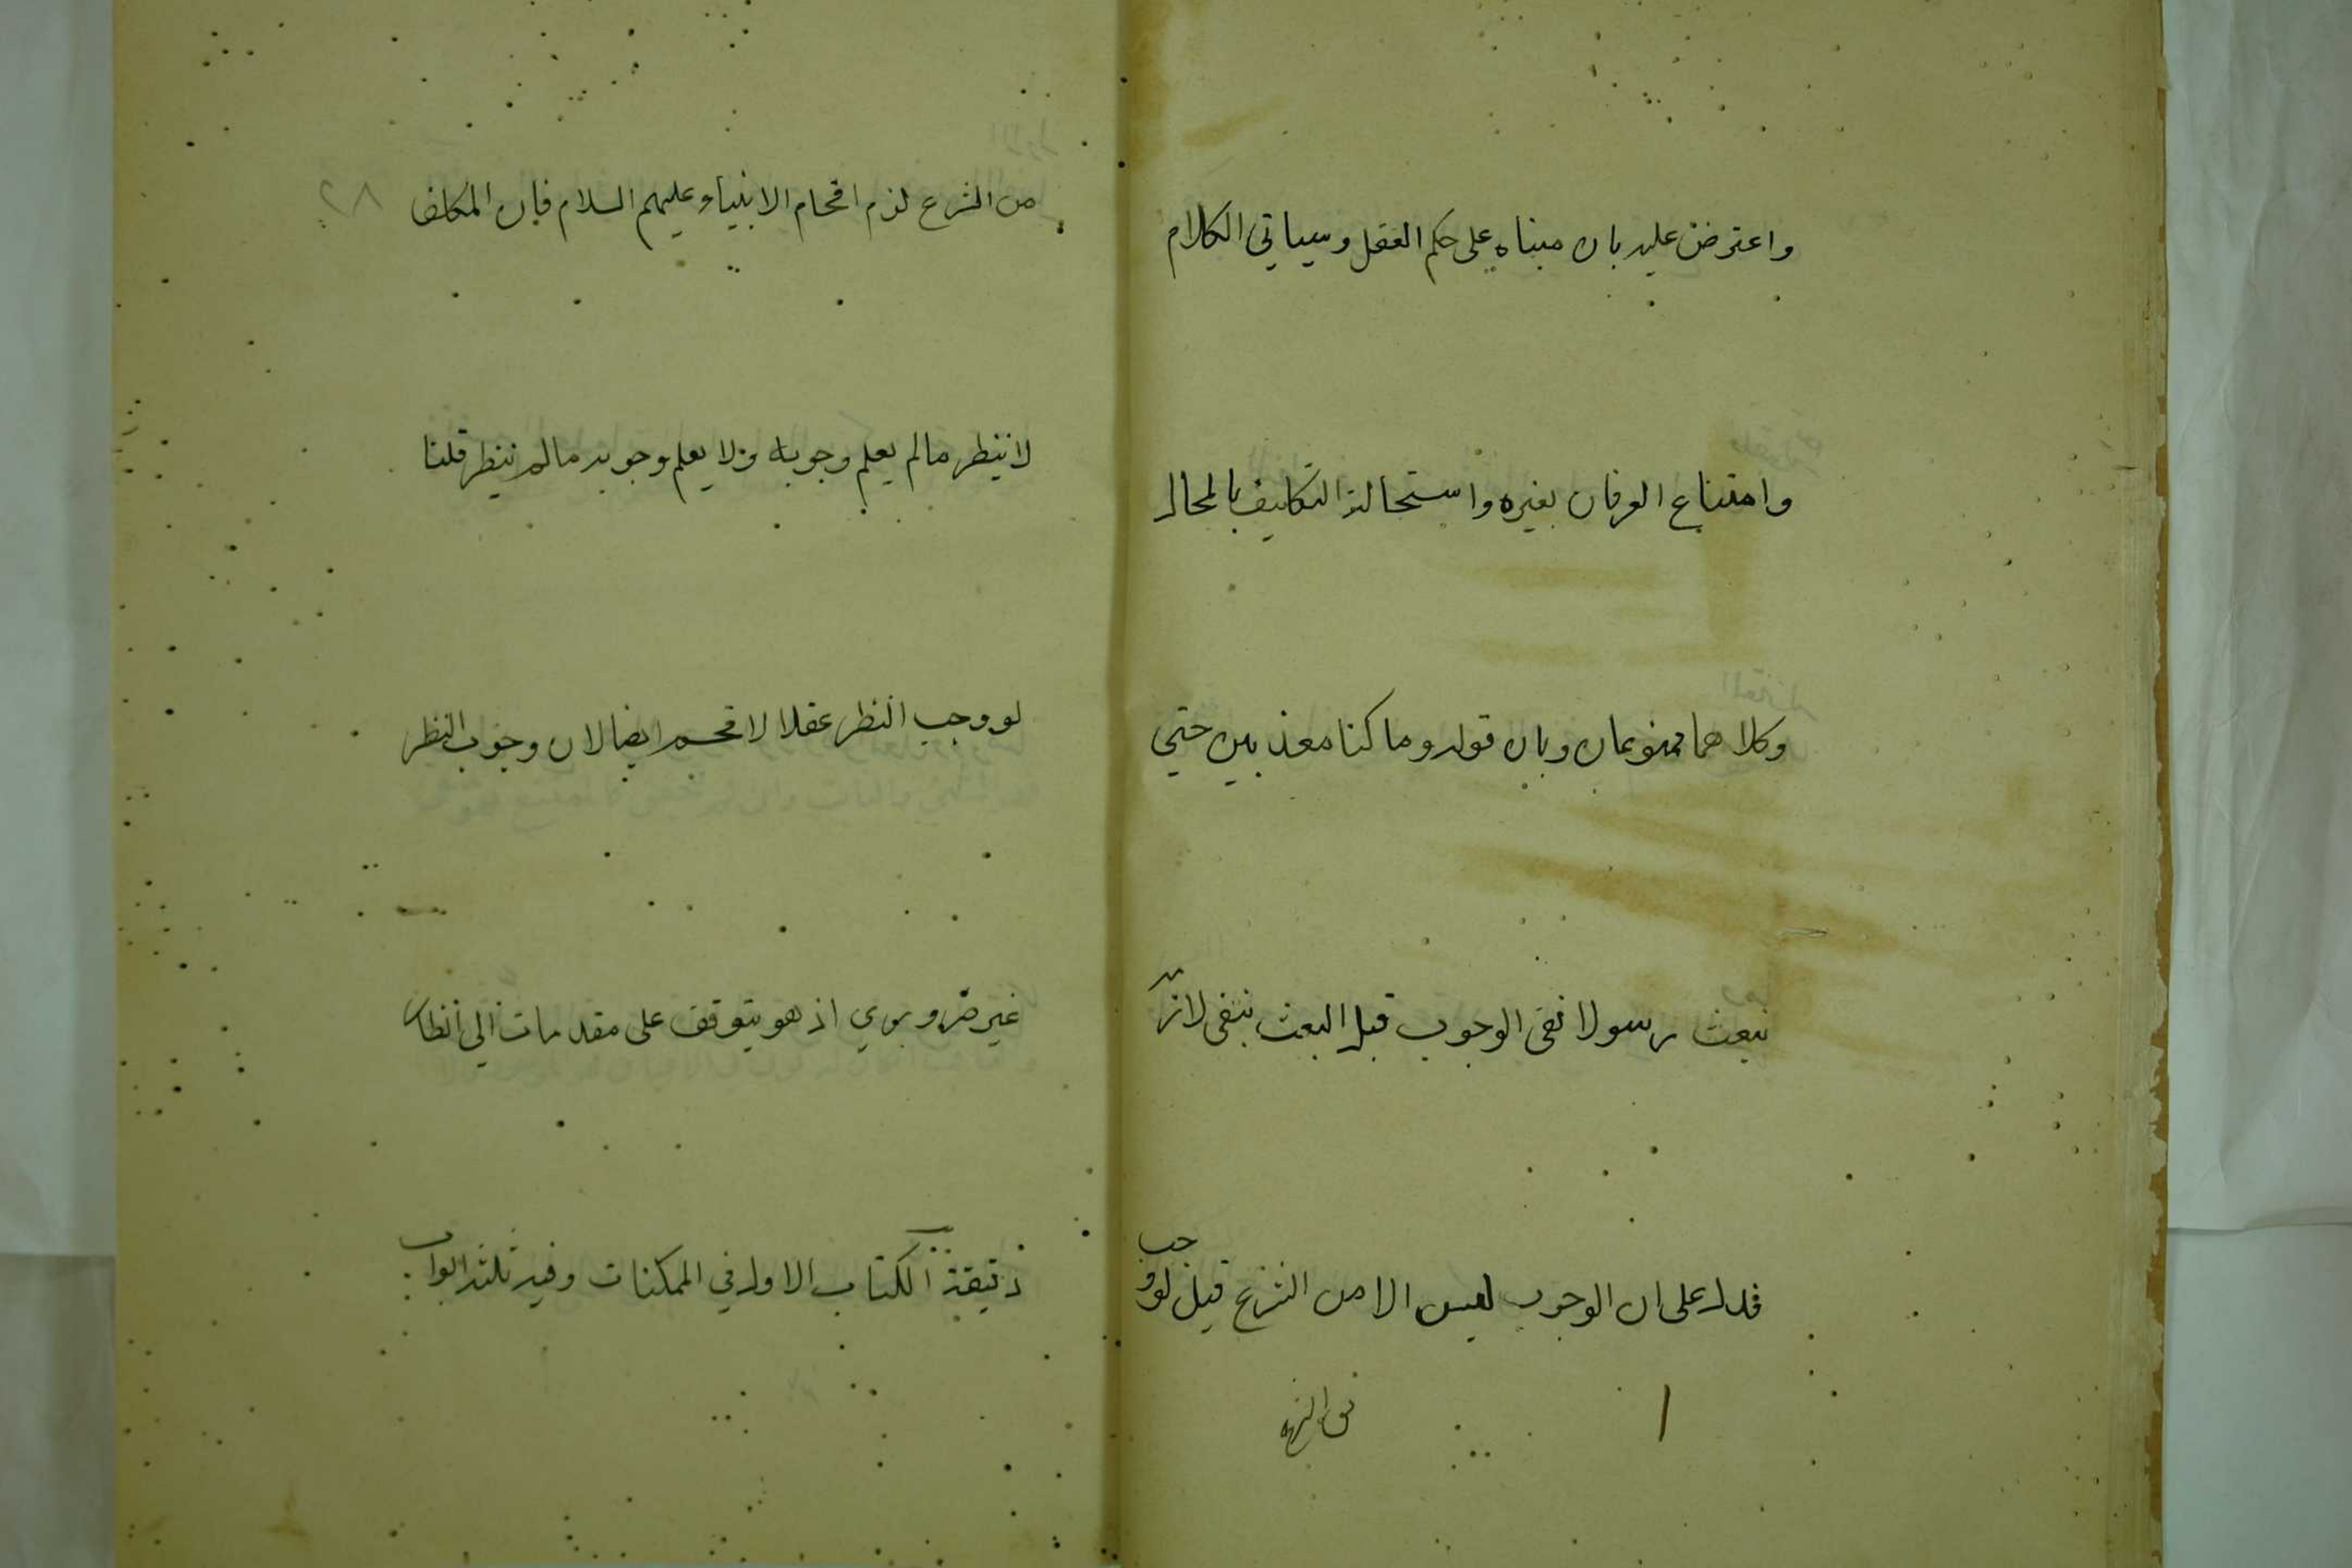 واعترض عليه بان مبناه على حكم العقل وسياتي الكلام
وامتناع العرفان بغيره واستحالة التكليف بالمحال
وكلاهما ممنوعان وبان قوله وما كنا معذبين حتي
نبعث رسولا نفى الوجوب قبل البعث بنفى لازمه
فدل على ان الوجوب ليس الا من الشرع قيل لو وجب
من الشرع
من الشرع لزم افحام الانبياء عليهم السلام فان المكلف
لا ننظر مالم يعلم وجوبه ولا يعلم وجوبه مالم ننظر قلنا
لو وجب النظر عقلا لافحم ايضا لان وجوب النظر
غير ضروري اذ هو يتوقف على مقدمات الي انظار
دقيقة الكتاب الاول في الممكنات وفيه ثلثة ابواب